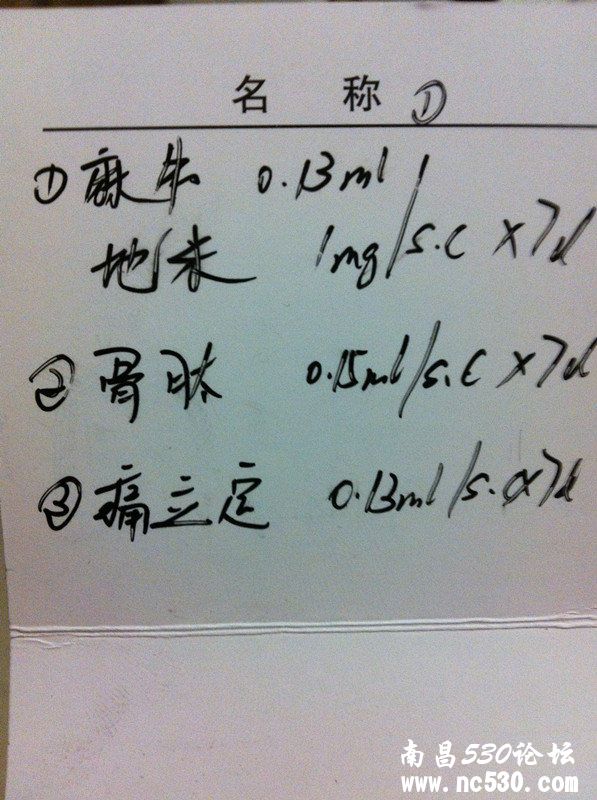 名 称 ①
① 麻朱 0.13ml
地米 1mg/s.c ×7d
② 骨肽 0.15ml/s.c ×7d
③ 痛立定 0.13ml/s.c×7d
南昌530论坛
www.nc530.com